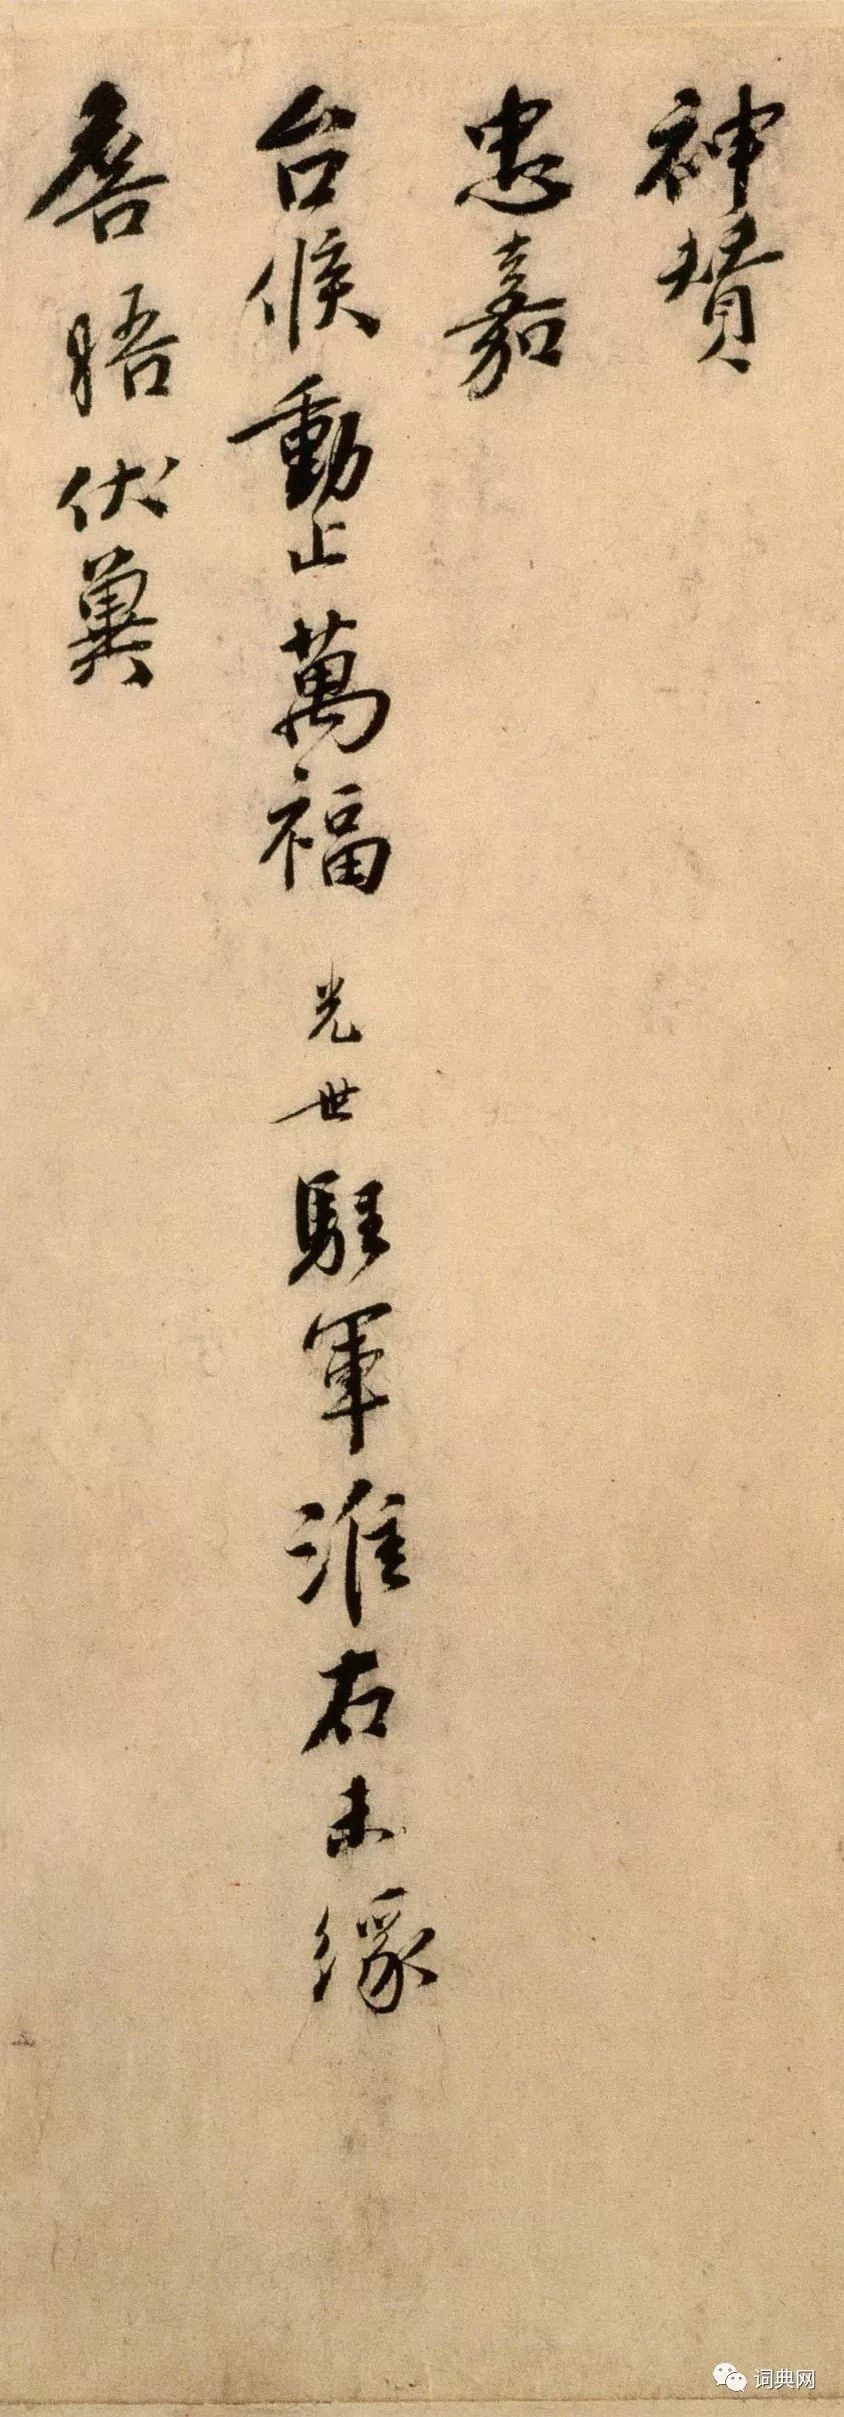 神贊
忠嘉
台候動止萬福光世駐軍淮右未緣
詹晤伏冀
词典网